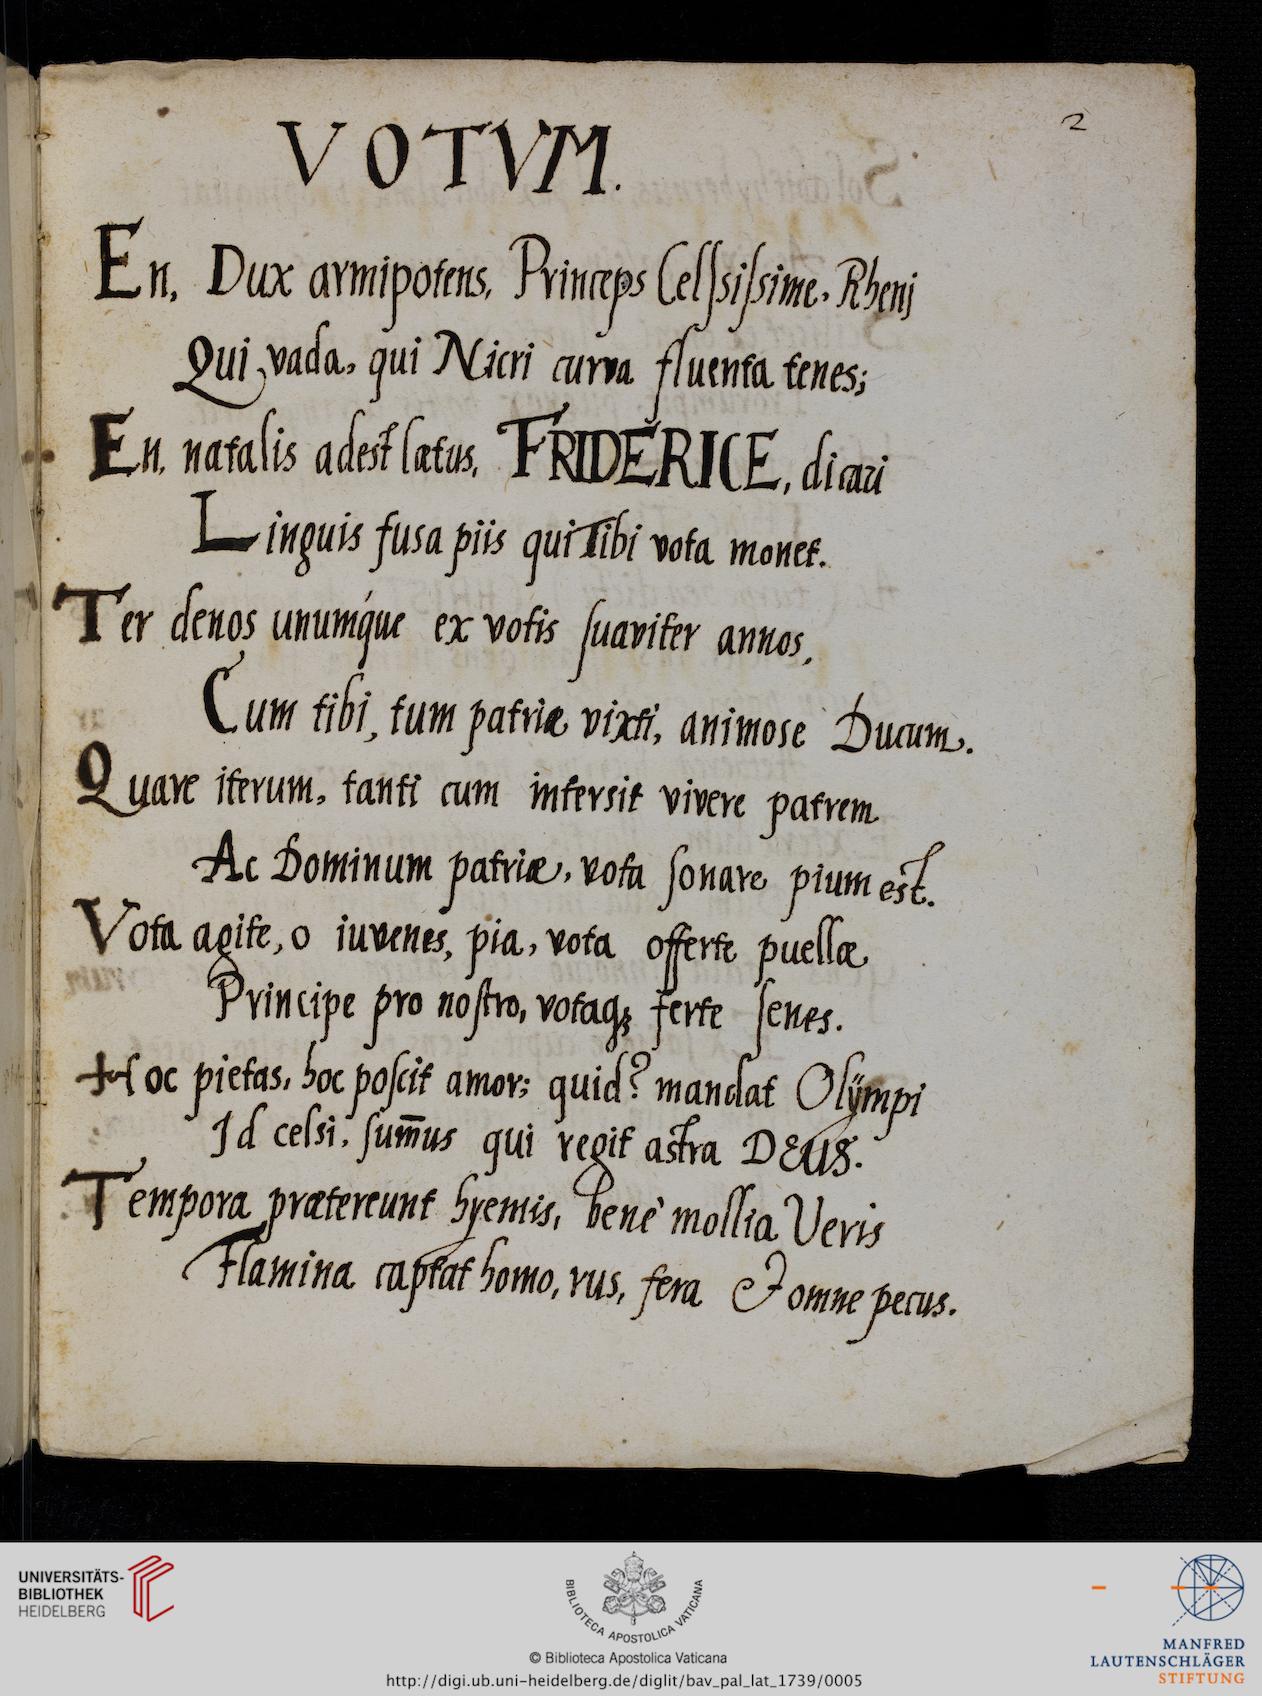 2
VOTVM.
En, Dux armipotens, Princeps Celsſsiſsime, Rhenj
Qui vada, qui Nicri curva fluenta tenes;
En, natalis adest lætus, FRIDERICE, dicari
Linguis fusa piis qui Tibi vota monet.
Ter denos unumq́ue ex votis ſuaviter annos,
Cum tibi, tum patriæ vixti, animose Ducum.
Quare iterum, tanti cum intersit vivere patrem
Ac Dominum patriæ, vota ſonare pium est.
Vota agite, o iuvenes, pia, vota offerte puellæ
Principe pro noſtro, votaqꝫ ferte ſenes.
Hoc pietas, hoc poſcit amor; quid? mandat Olÿmpi
Id celsi, ſum̄us qui regit astra DEUS.
Tempora prætereunt hyemis, benè mollia Veris
Flamina captat homo, rus, fera & omne pecus.
UNIVERSITÄTS-
BIBLIOTHEK
HEIDELBERG
BIBLIOTECA APOSTOLICA VATICANA
© Biblioteca Apostolica Vaticana
http://digi.ub.uni-heidelberg.de/diglit/bav_pal_lat_1739/0005
MANFRED
LAUTENSCHLÄGER
STIFTUNG